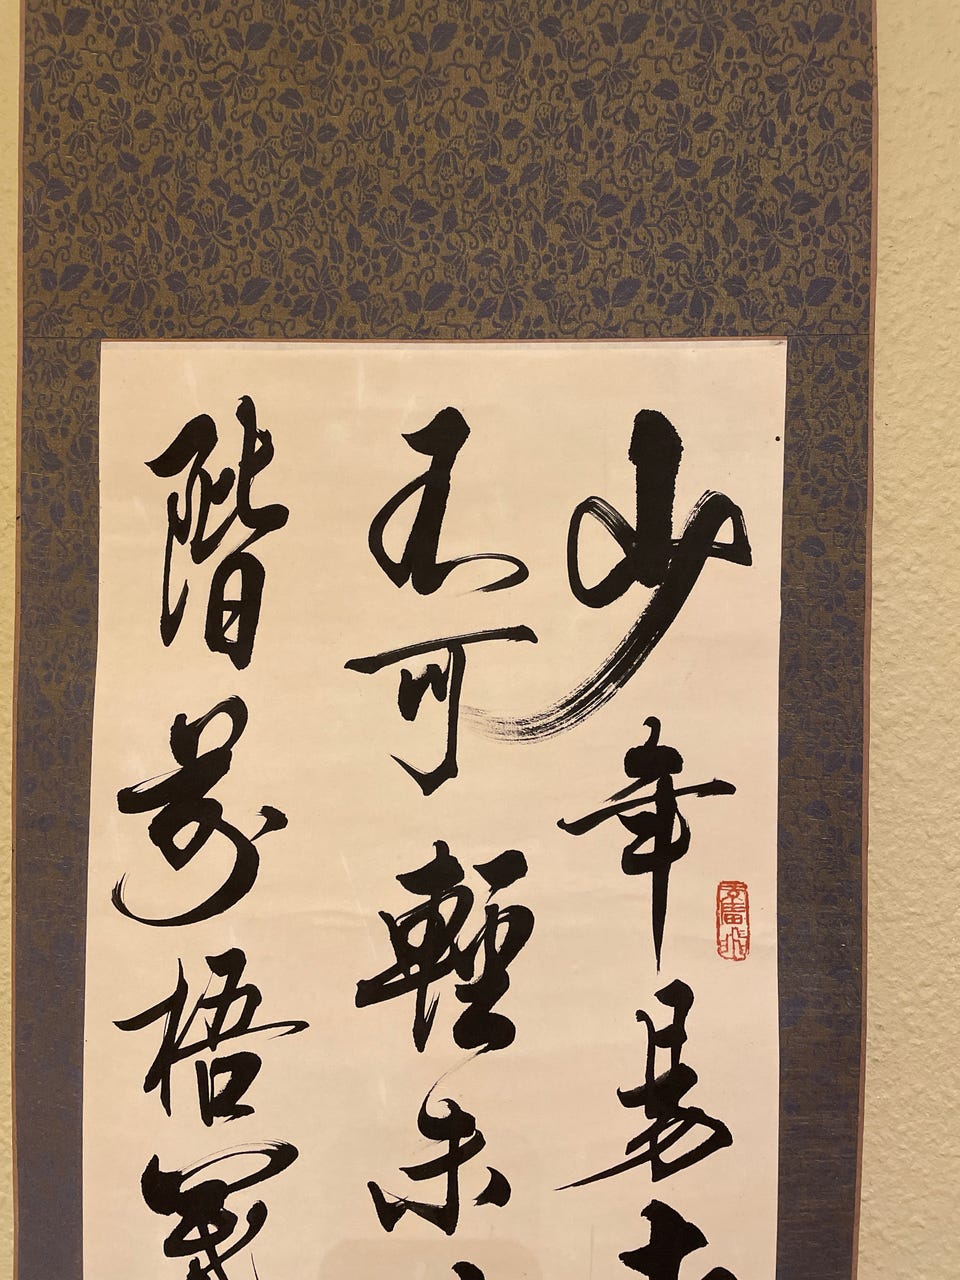 少年易老
不可輕未
階前梧葉